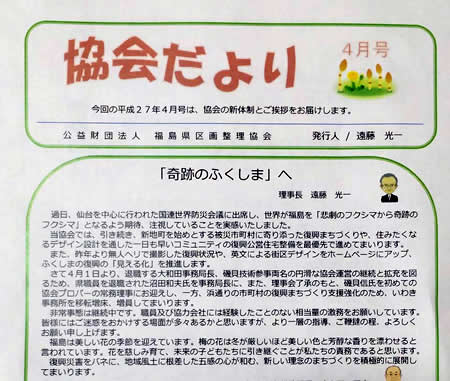 協会だより
4月号
今回の平成27年4月号は、協会の新体制とご挨拶をお届けします。
公益財団法人 福島県区画整理協会 発行人/遠藤 光一
「奇跡のふくしま」へ
理事長 遠藤 光一
過日、仙台を中心に行われた国連世界防災会議に出席し、世界が福島を「悲劇のフクシマから奇跡の
フクシマ」となるよう期待、注視していることを実感いたしました。
当協会では、引き続き、新地町を始めとする被災市町村に寄り添った復興まちづくりや、住みたくな
るデザイン設計を通した一日も早いコミュニティの復興公営住宅整備を最優先で進めてまいります。
また、昨年より無人ヘリで撮影した復興状況や、英文による街区デザインをホームページにアップ、
ふくしまの復興の「見える化」を推進します。
さて4月1日より、退職する大和田事務局長、磯貝技術参事両名の円滑な協会運営の継続と拡充を図
るため、県職員を退職された沼田和夫氏を事務局長に、また、理事会了承のもと、磯貝信氏を初めての
協会プロパーの常務理事にお迎えし、一方、浜通りの市町村の復興まちづくり支援強化のため、いわき
事務所を移転増床、増員してまいります。
非常事態は継続中です。職員及び協力会社には経験したことのない相当量の激務をお願いしています。
皆様にはご迷惑をおかけする場面が多々あるかと思いますが、より一層の指導、ご鞭撻の程、よろしく
お願い申し上げます。
福島は美しい花の季節を迎えています。梅の花は冬が厳しいほど美しい色と芳醇な香りを漂わせると
言われています。花を慈しみ育て、未来の子どもたちに引き継ぐことが私たちの責務であると思います。
復興災害をバネに、地域風土に根差した五感の心が和む、新しい理念のまちづくりを積極的に展開し
てまいります。